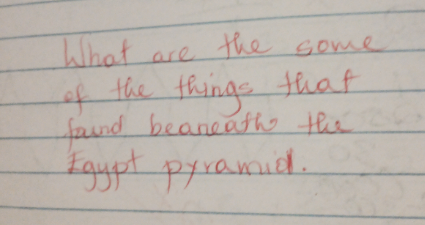 What are the some
of the things that
found beaneath the
Egypt pyramid.